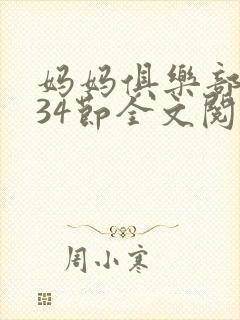 妈妈俱樂部
34節全文閱
周小寒